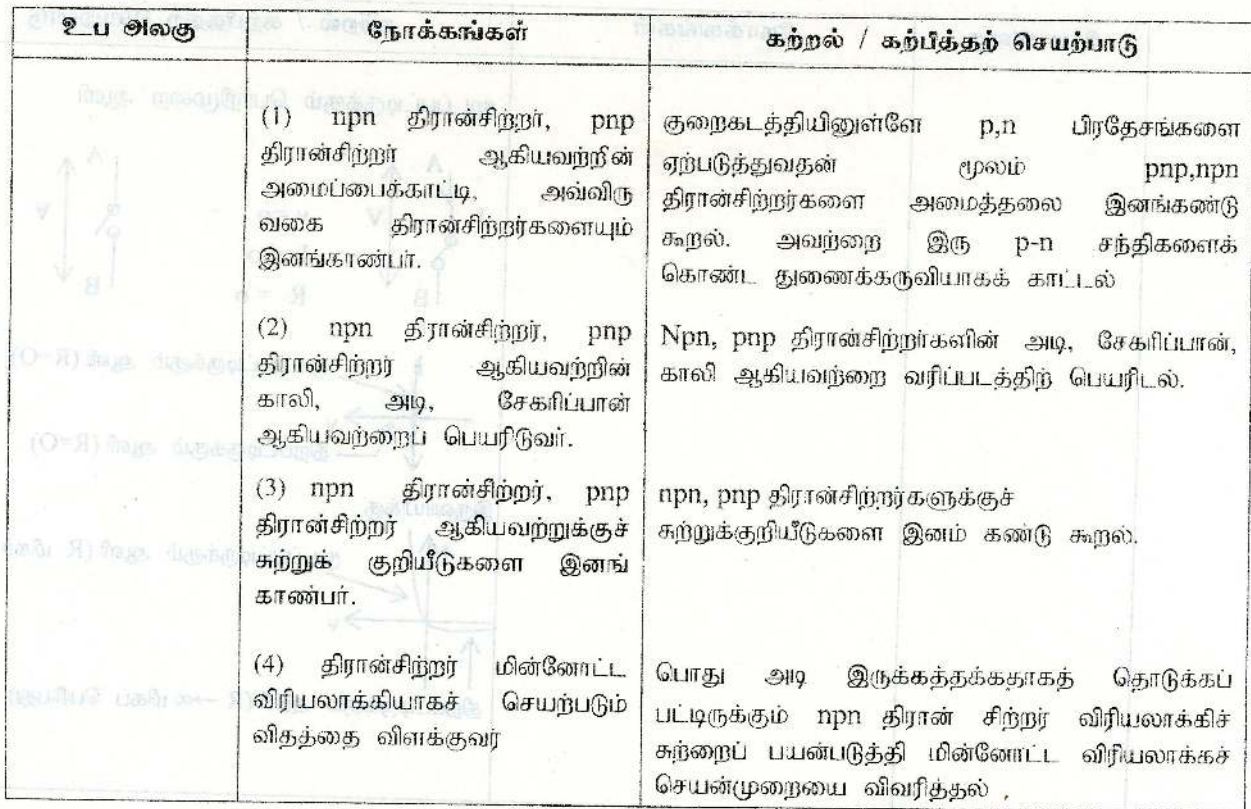 உப அலகு
நோக்கங்கள்
கற்றல் / கற்பித்தற் செயற்பாடு
(1) npn திரான்சிற்றர், pnp
திரான்சிற்றர் ஆகியவற்றின்
அமைப்பைக்காட்டி, அவ்விரு
வகை திரான்சிற்றர்களையும்
இனங்காண்பர்.
குறைகடத்தியினுள்ளே p,n பிரதேசங்களை
ஏற்படுத்துவதன் மூலம் pnp,npn
திரான்சிற்றர்களை அமைத்தலை இனங்கண்டு
கூறல். அவற்றை இரு p-n சந்திகளைக்
கொண்ட துணைக்கருவியாகக் காட்டல்
(2) npn திரான்சிற்றர், pnp
திரான்சிற்றர் ஆகியவற்றின்
காலி, அடி, சேகரிப்பான்
ஆகியவற்றைப் பெயரிடுவர்.
Npn, pnp திரான்சிற்றர்களின் அடி, சேகரிப்பான்,
காலி ஆகியவற்றை வரிப்படத்திற் பெயரிடல்.
(3) npn திரான்சிற்றர், pnp
திரான்சிற்றர் ஆகியவற்றுக்குச்
சுற்றுக் குறியீடுகளை இனங்
காண்பர்.
npn, pnp திரான்சிற்றர்களுக்குச்
சுற்றுக்குறியீடுகளை இனம் கண்டு கூறல்.
(4) திரான்சிற்றர் மின்னோட்ட
விரியலாக்கியாகச் செயற்படும்
விதத்தை விளக்குவர்
பொது அடி இருக்கத்தக்கதாகத் தொடுக்கப்
பட்டிருக்கும் npn திரான் சிற்றர் விரியலாக்கிச்
சுற்றைப் பயன்படுத்தி மின்னோட்ட விரியலாக்கச்
செயன்முறையை விவரித்தல் .